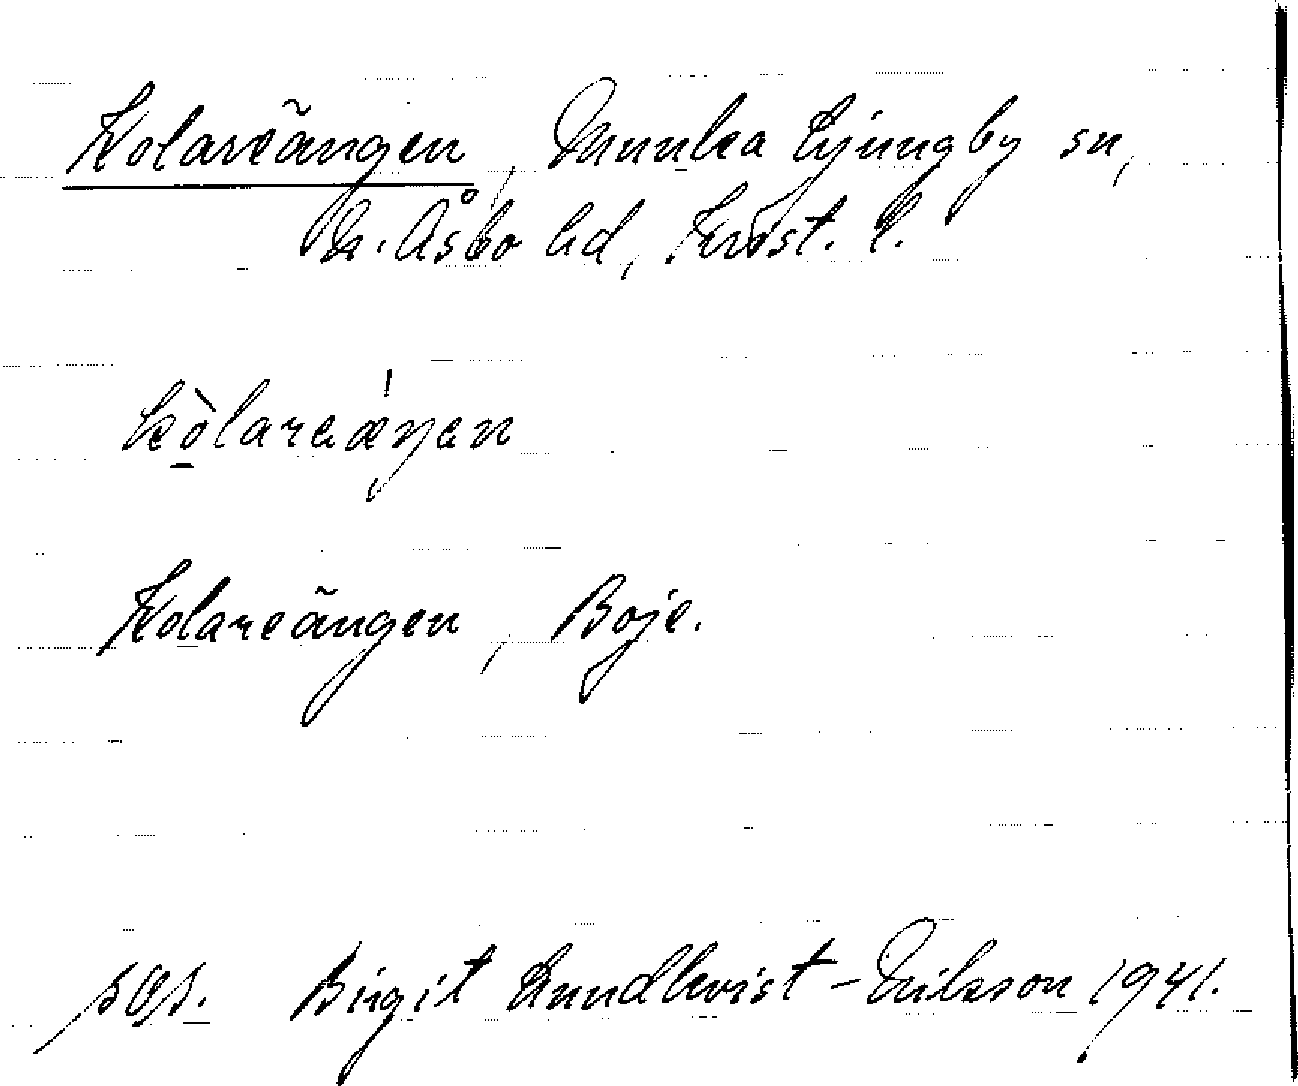 Kolareängen, Munka Ljungby sn,
N. Åsbo hd, Krist. l.
kò̱lareæ̍ŋen
Kolareängen, Boje.
Birgit Lundkvist-Nilsson 1941.